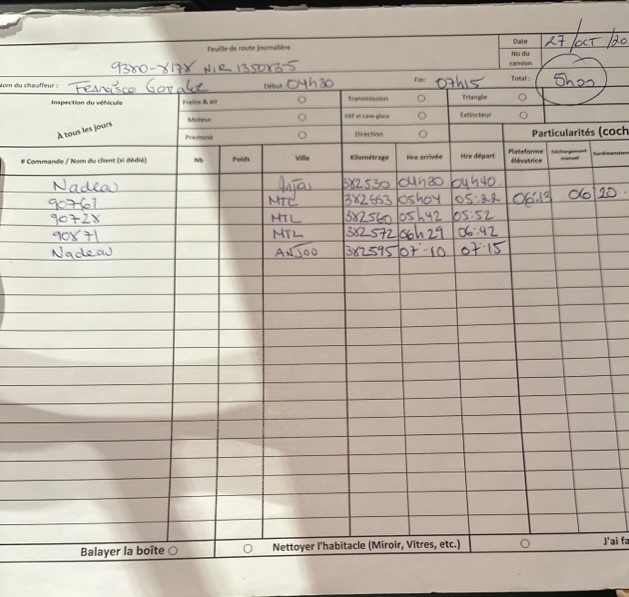 Feuille de route journalière
Date 27/OCT/20
No du camion
9380-8178 NIR 135083-5
Nom du chauffeur : Début 04h30 Fin: 07h15 Total : 5h00
Inspection du véhicule Freins & air Transmission Triangle
À tous les jours Moteur Extincteur
Prestone Direction Particularités (coch
# Commande / Nom du client (si dédié) Nb Poids Ville Kilométrage Hre arrivée Hre départ Plateforme élévatrice Déchargement manuel
Nadeau Anjou 382530 04H30 04H40
90761 MTL 382553 05H04 05:22 06:12 06 20
90728 MTL 382560 05H42 05:52
90871 MTL 382572 06h29 06:42
Nadeau ANJOU 382595 07:10 07:15
Balayer la boîte Nettoyer l'habitacle (Miroir, Vitres, etc.) J'ai fa